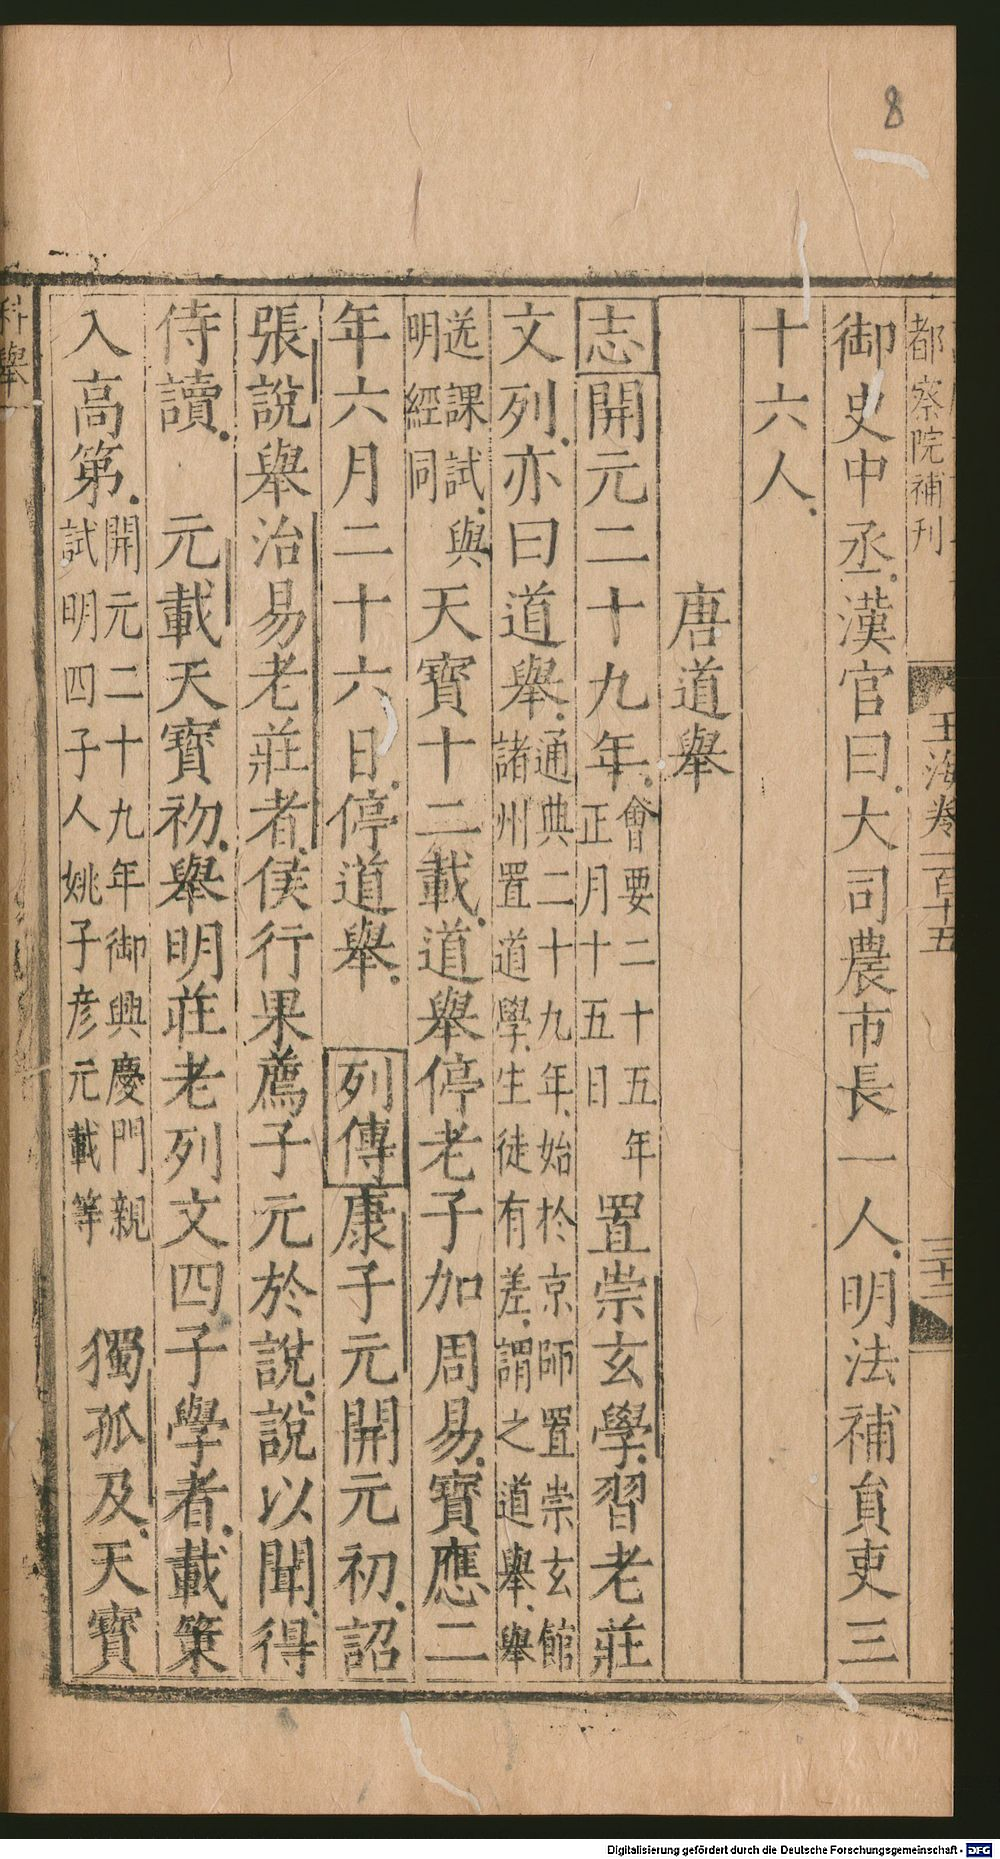 8
都察院補刊
玉海卷一百十五
御史中丞漢官曰大司農市長一人明法補員吏三
十六人
唐道舉
志開元二十九年會要二十五年正月十五日置崇玄學習老莊
文列亦曰道舉通典二十九年始於京師置崇玄館諸州置道學生徒有差謂之道舉舉
送課試與明經同天寶十二載道舉停老子加周易寶應二
年六月二十六日停道舉列傳康子元開元初詔
張說舉治易老莊者侯行果薦子元於說說以聞得
侍讀元載天寶初舉明莊老列文四子學者載策
入高第開元二十九年御興慶門親試明四子人姚子彥元載等獨孤及天寶
科舉
Digitalisierung gefördert durch die Deutsche Forschungsgemeinschaft - DFG